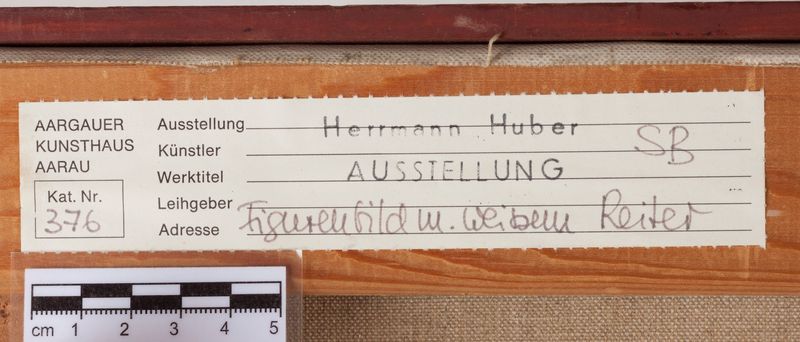 AARGAUER
KUNSTHAUS
AARAU
Kat. Nr.
376
Ausstellung Herrmann Huber
Künstler SB
Werktitel AUSSTELLUNG
Leihgeber
Adresse Figurenbild m. weissem Reiter
cm 1 2 3 4 5